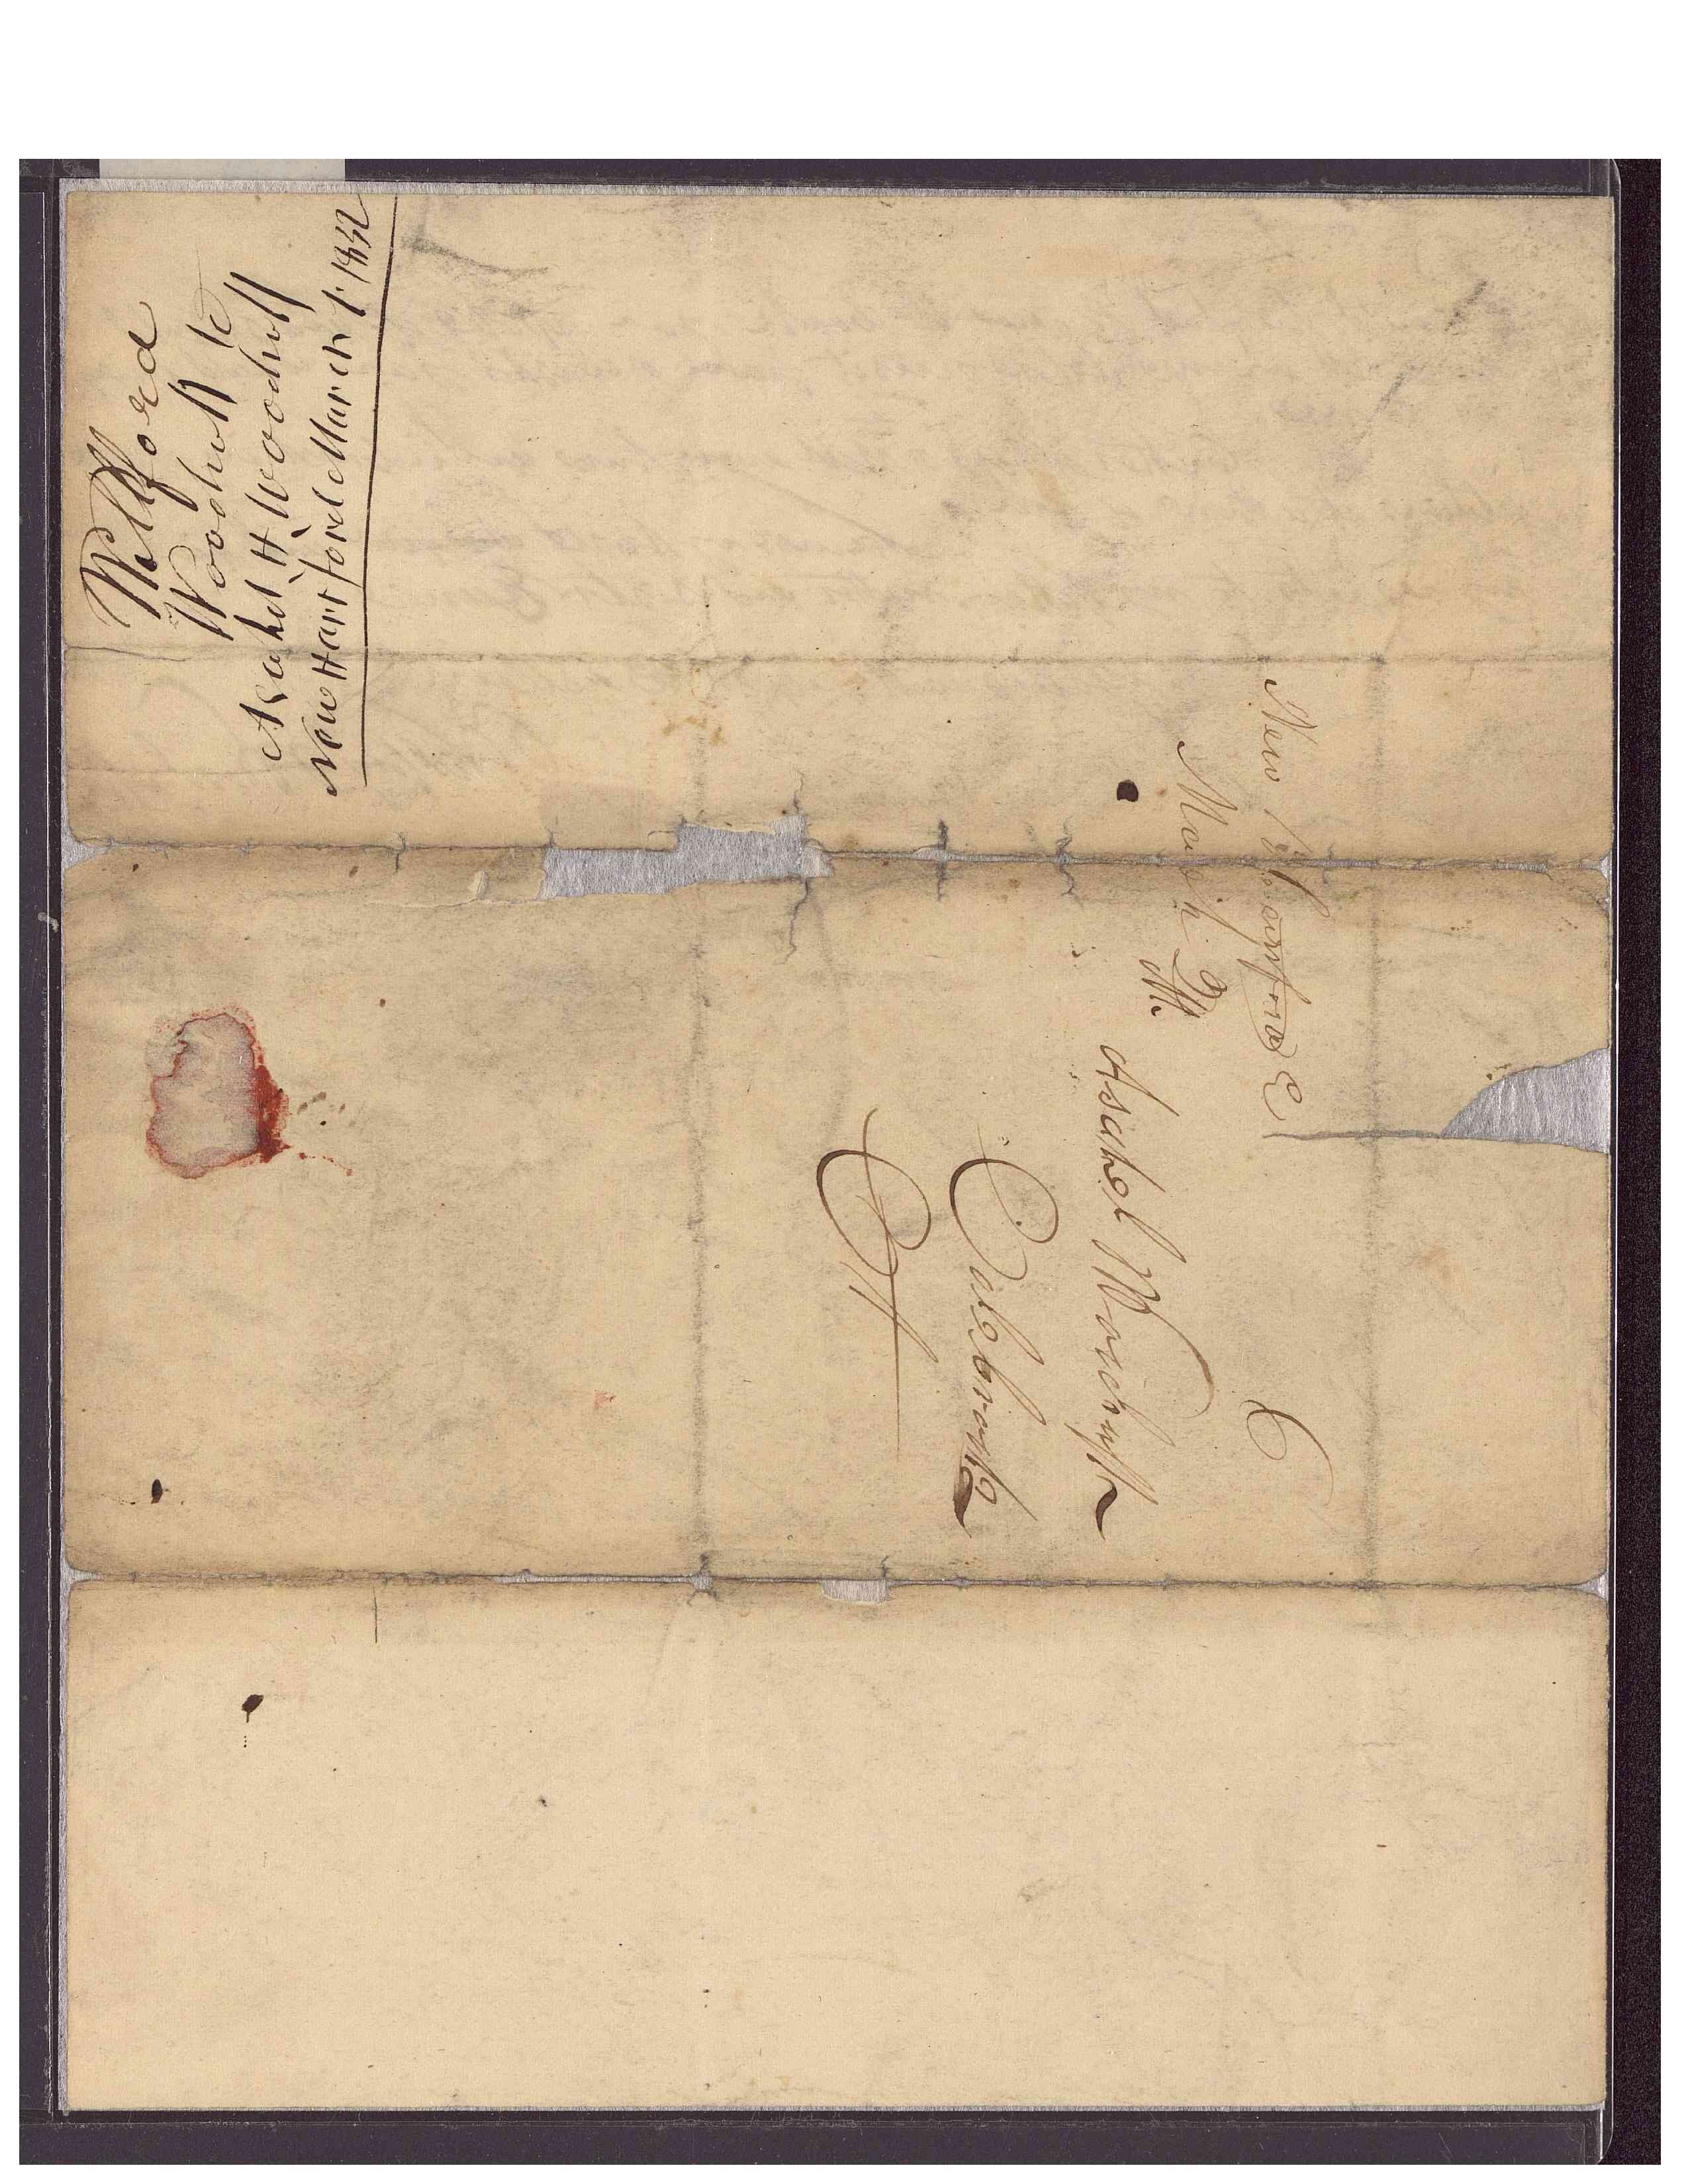 Willford
Woodruff to
Asahel H Woodruff
New Hartford March 1st 1832
New Hartford Ct
March 2d
6
Mr. Asahel Woodruff
Colebrook
Ct